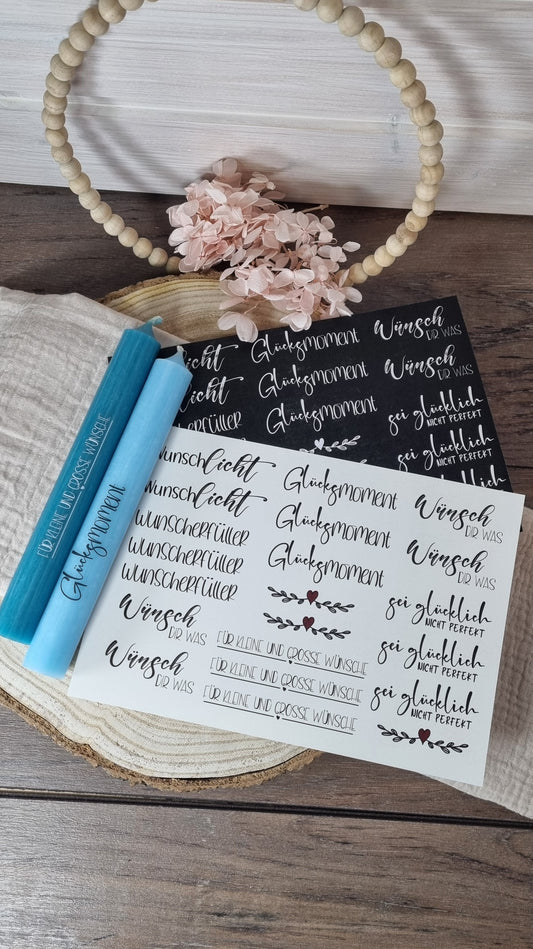 FÜR KLEINE UND GROSSE WÜNSCHE
Glücksmoment
licht
licht
erfüller
Glücksmoment
Glücksmoment
Glücksmoment
Wünsch
DIR WAS
Wünsch
DIR WAS
sei glücklich
NICHT PERFEKT
sei glücklich
NICHT PERFEKT
sei glücklich
Wunschlicht
Wunschlicht
WUNSCHERFÜLLER
WUNSCHERFÜLLER
WUNSCHERFÜLLER
Wünsch
DIR WAS
Wünsch
DIR WAS
Glücksmoment
Glücksmoment
Glücksmoment
FÜR KLEINE UND GROSSE WÜNSCHE
FÜR KLEINE UND GROSSE WÜNSCHE
FÜR KLEINE UND GROSSE WÜNSCHE
Wünsch
DIR WAS
Wünsch
DIR WAS
sei glücklich
NICHT PERFEKT
sei glücklich
NICHT PERFEKT
sei glücklich
NICHT PERFEKT